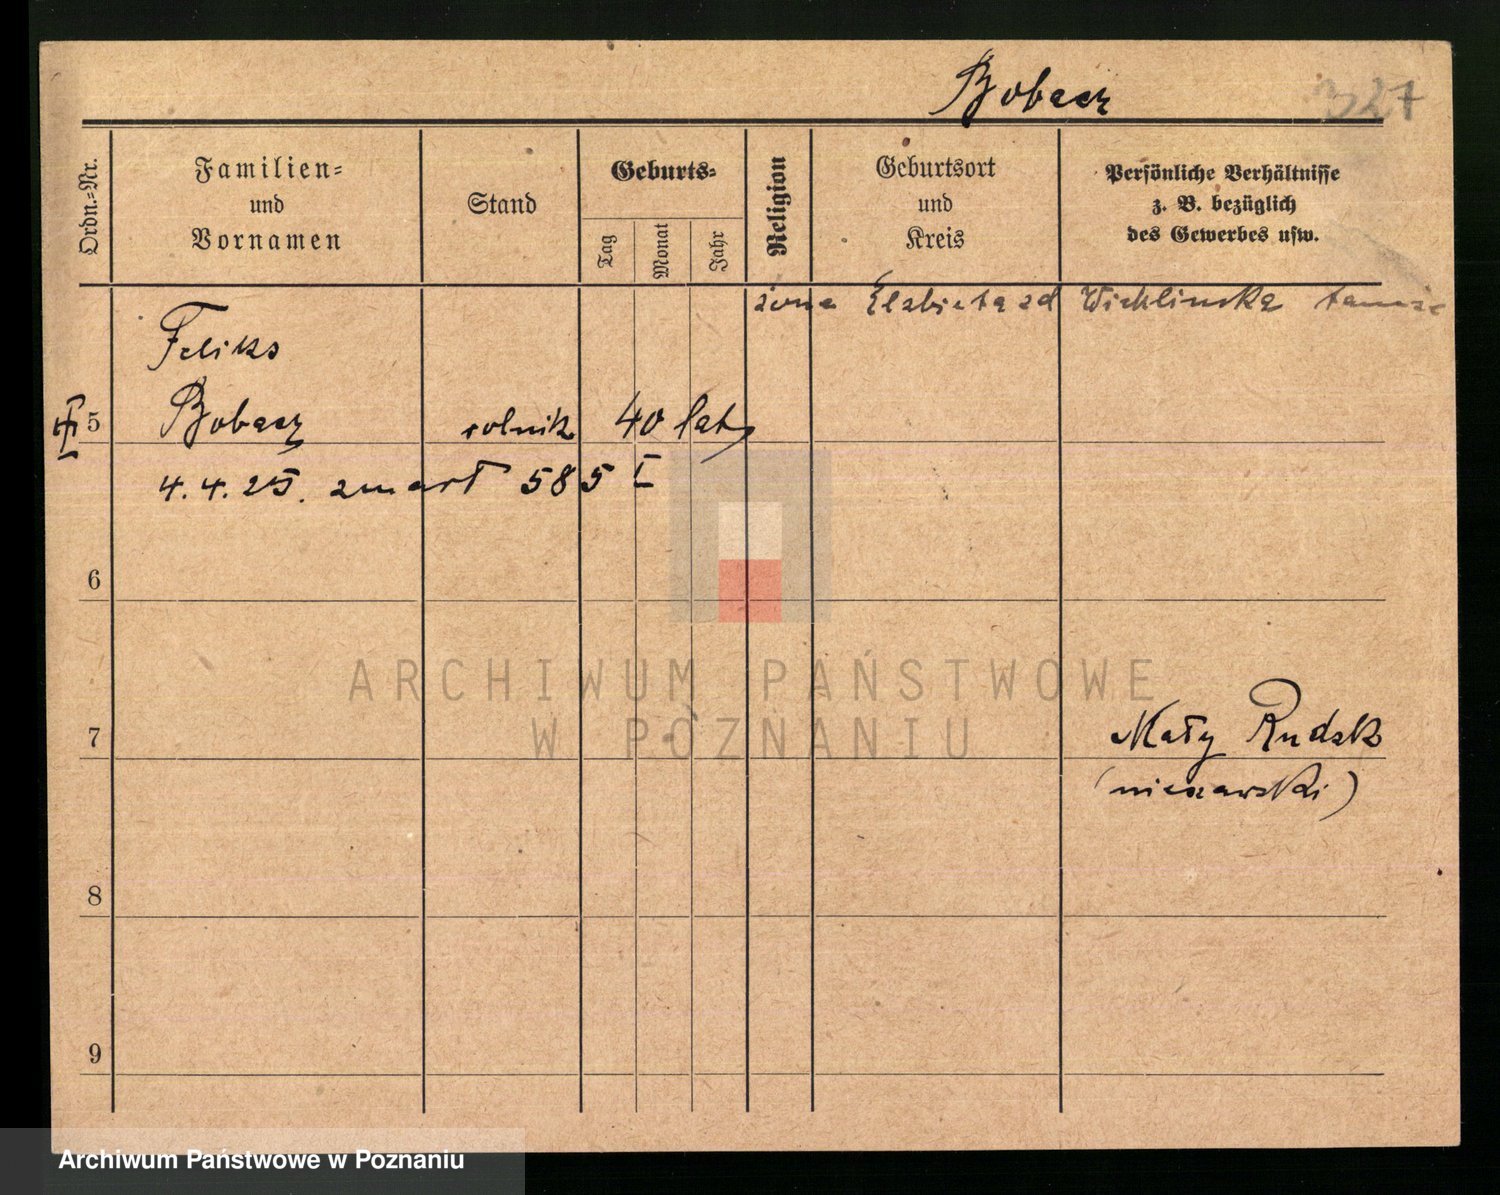 Bobacz 327
Ordn.-Nr.
Familien-
und
Vornamen
Stand
Geburts-
Tag
Monat
Jahr
Religion
Geburtsort
und
Kreis
Persönliche Verhältnisse
z. B. bezüglich
des Gewerbes usw.
żona Elżbieta zd Wichlinska tamże
Feliks
5 Bobacz rolnik 40 lat
4.4.25. zmarł 585 I
6
ARCHIWUM PAŃSTWOWE
W POZNANIU
7 Mały Rudzk
(nieszawski)
8
9
Archiwum Państwowe w Poznaniu